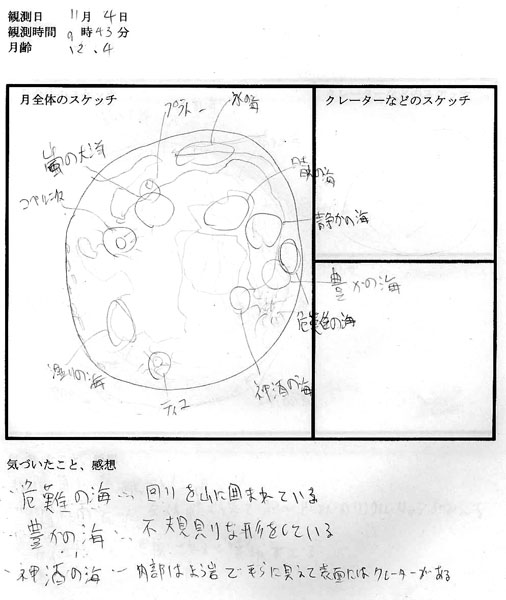 観測日 11月 4日
観測時間 9時43分
月齢 12.4
月全体のスケッチ
クレーターなどのスケッチ
プラトー
氷の海
嵐の大洋
晴の海
コペルニクス
静かの海
豊かの海
危難の海
湿りの海
ティコ
神酒の海
気づいたこと、感想
・危難の海… 回りを山に囲まれている
・豊かの海… 不規則な形をしている
・神酒の海… 内部はよう岩で平らに見えて表面にはクレーターがある